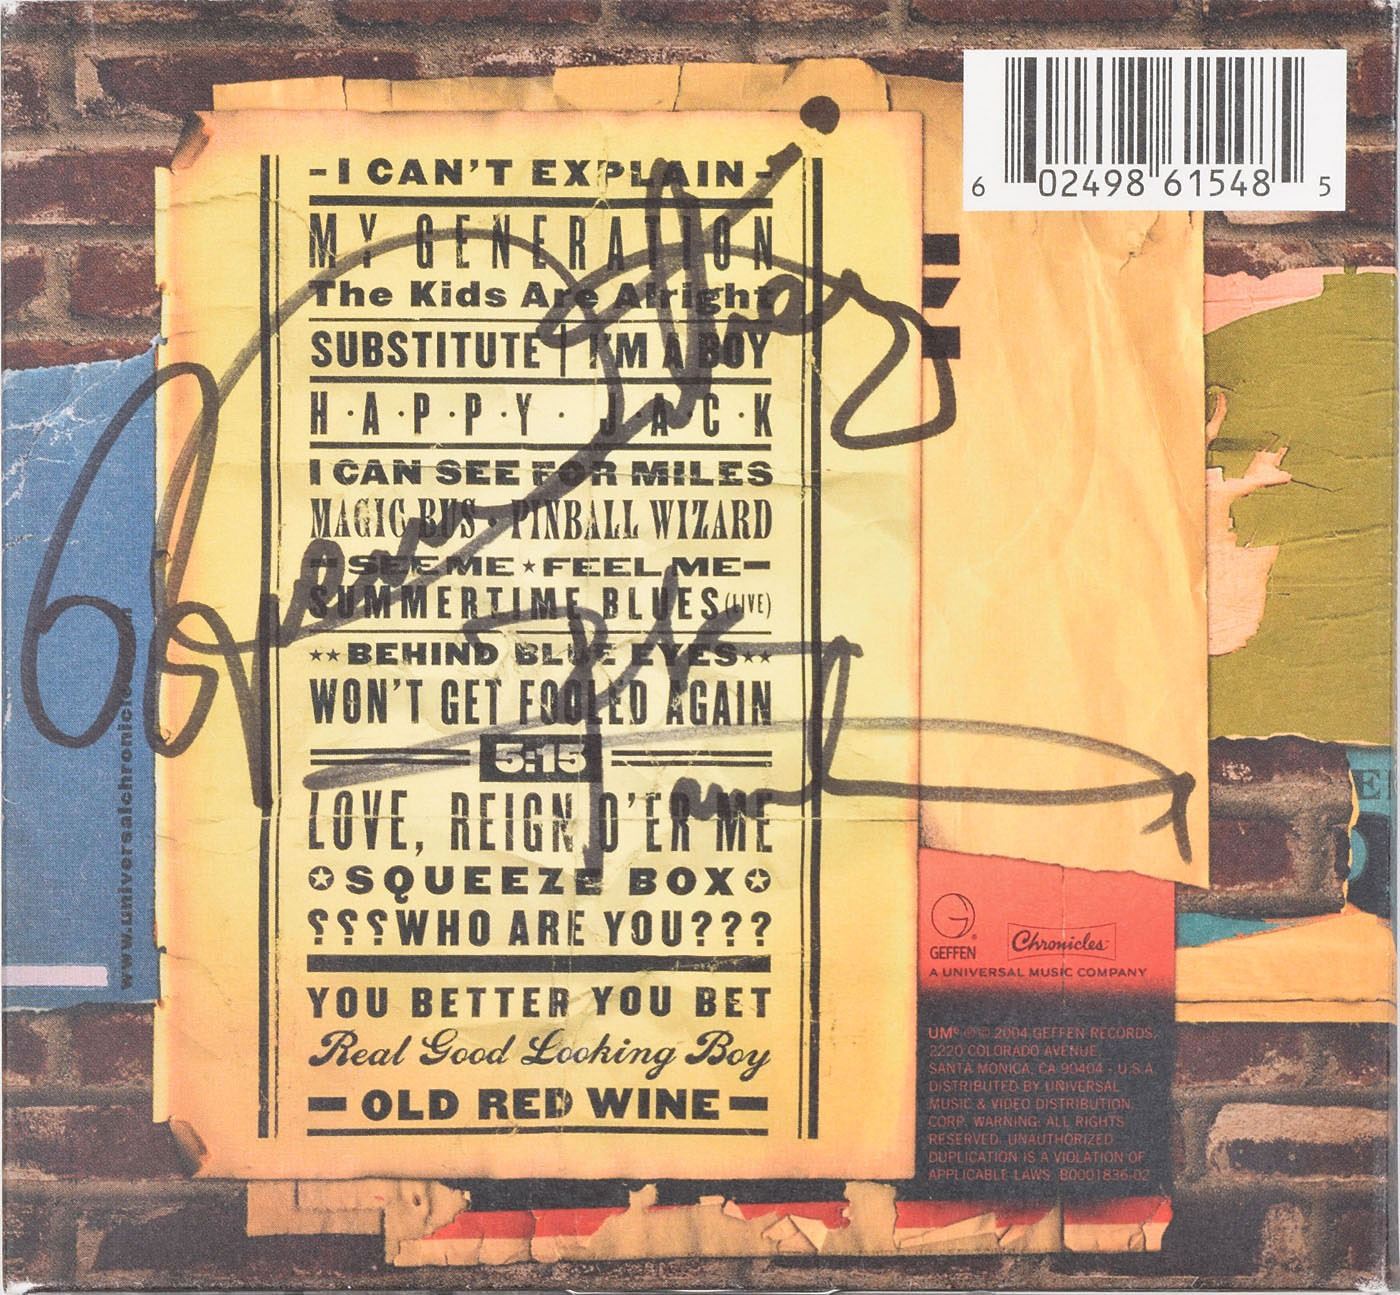 6 02498 61548 5
-I CAN'T EXPLAIN-
MY GENERATION
The Kids Are Alright
SUBSTITUTE | I'M A BOY
H·A·P·P·Y · J·A·C·K
I CAN SEE FOR MILES
MAGIC BUS · PINBALL WIZARD
—SEE ME ★ FEEL ME—
SUMMERTIME BLUES (LIVE)
★★BEHIND BLUE EYES★★
WON'T GET FOOLED AGAIN
5:15
LOVE, REIGN O'ER ME
✪SQUEEZE BOX✪
???WHO ARE YOU???
YOU BETTER YOU BET
Real Good Looking Boy
—OLD RED WINE—
www.universalchronicles.com
GEFFEN
Chronicles
A UNIVERSAL MUSIC COMPANY
UMe ℗© 2004 GEFFEN RECORDS,
2220 COLORADO AVENUE,
SANTA MONICA, CA 90404 - U.S.A.
DISTRIBUTED BY UNIVERSAL
MUSIC & VIDEO DISTRIBUTION,
CORP. WARNING: ALL RIGHTS
RESERVED. UNAUTHORIZED
DUPLICATION IS A VIOLATION OF
APPLICABLE LAWS. B0001836-02